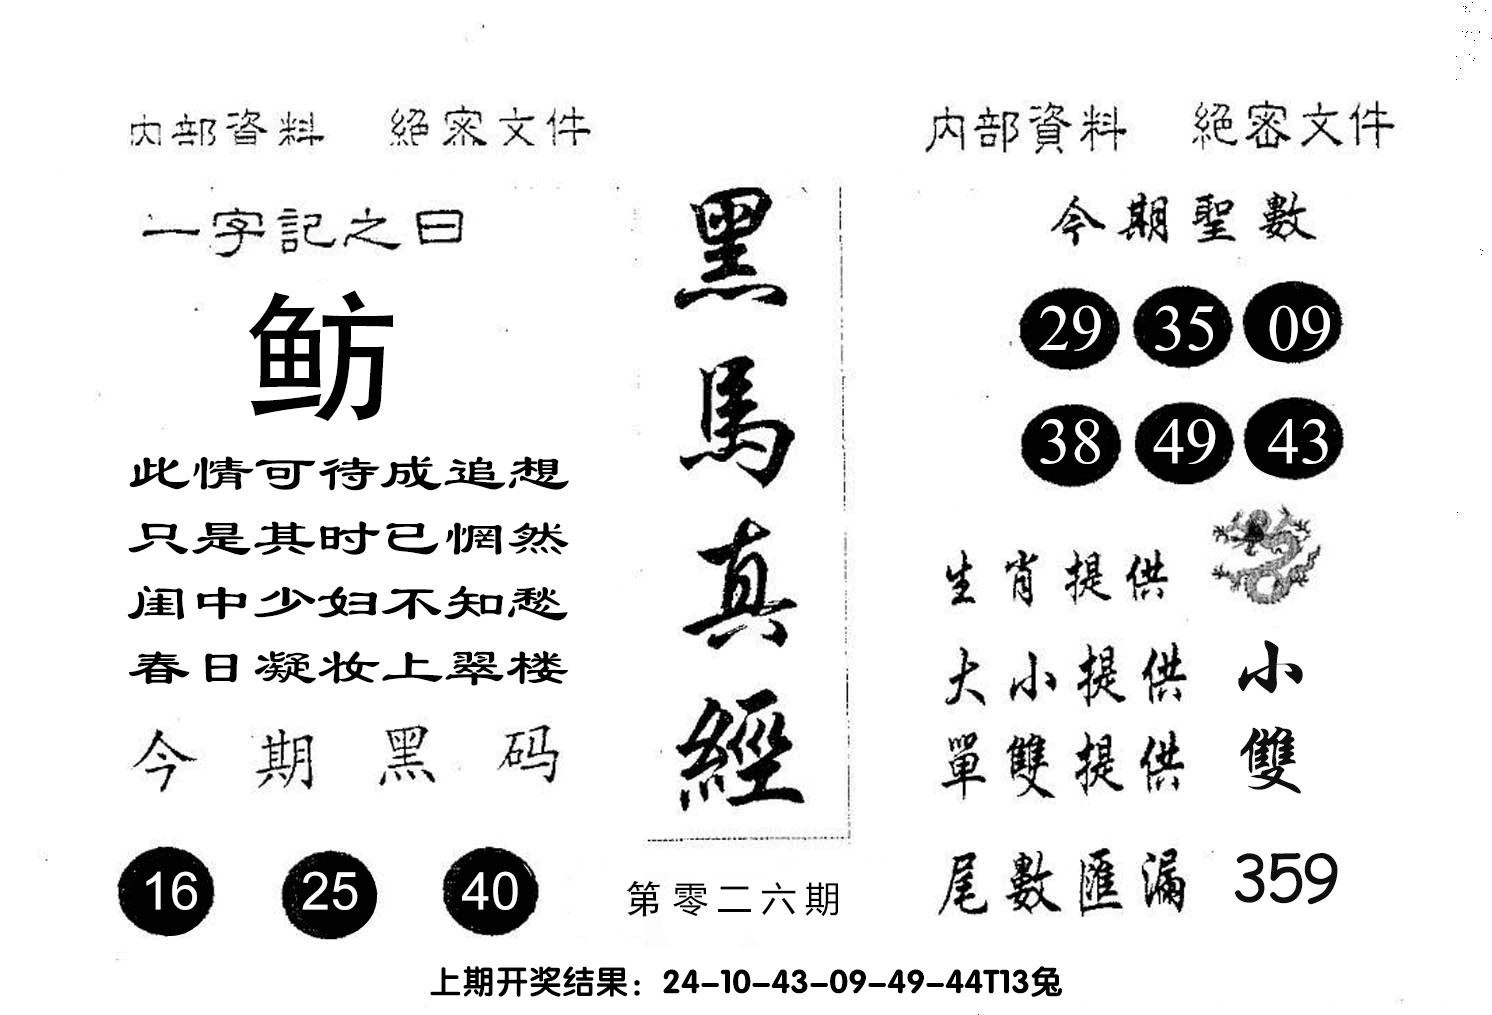 内部資料 絕密文件
一字記之曰
鲂
此情可待成追想
只是其时已惘然
闺中少妇不知愁
春日凝妆上翠楼
今期黑码
16 25 40
黑馬真經
第零二六期
内部資料 絕密文件
今期聖數
29 35 09
38 49 43
生肖提供
大小提供 小
單雙提供 雙
尾數匯漏 359
上期开奖结果：24-10-43-09-49-44T13兔